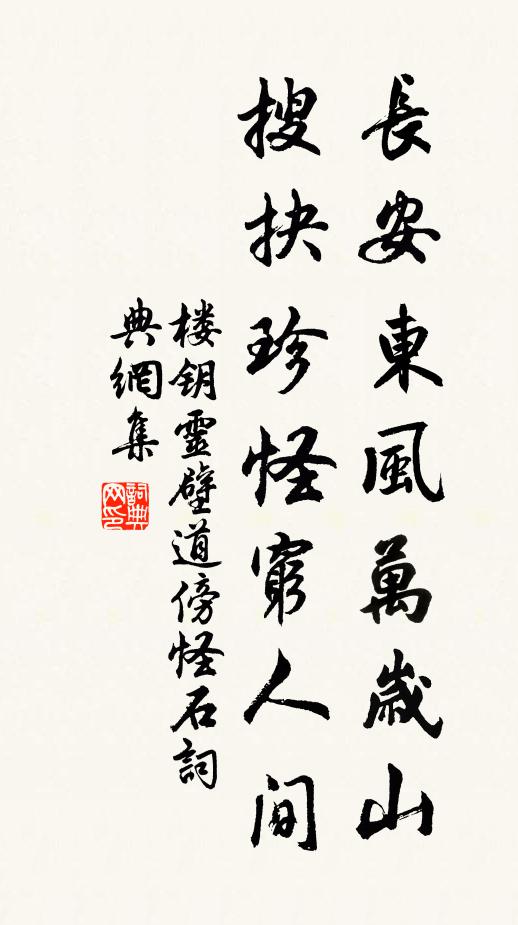 長安東風萬歲山
搜抉珍怪窮人間
楼鑰靈壁道傍怪石詞
典網集
詞典
网印